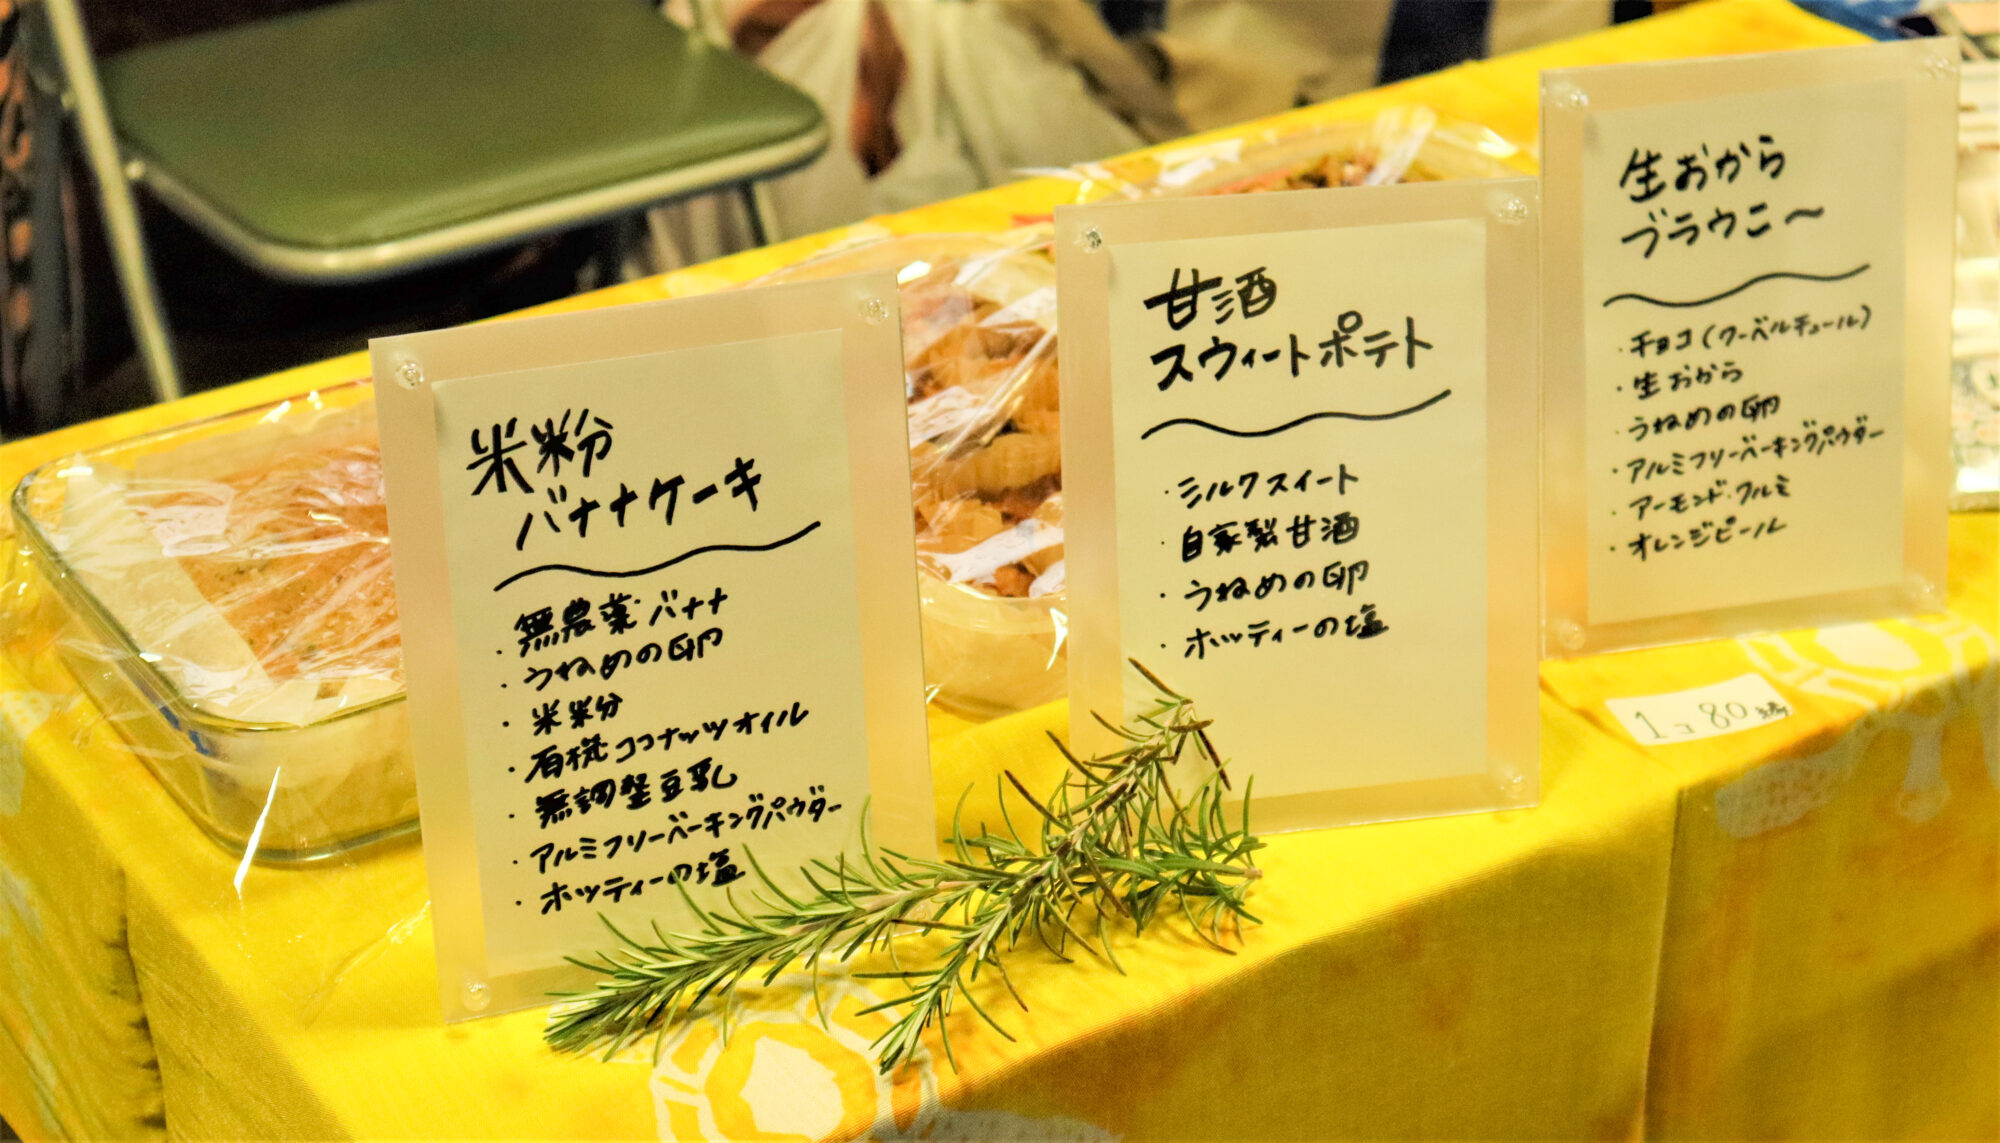 米粉
バナナケーキ
・無農薬バナナ
・うねめの卵
・米粉
・有機ココナッツオイル
・無調整豆乳
・アルミフリーベーキングパウダー
・ホッティーの塩
甘酒
スウィートポテト
・ミルクスイート
・自家製甘酒
・うねめの卵
・ホッティーの塩
生おから
ブラウニ〜
・チョコ(クーベルチュール)
・生おから
・うねめの卵
・アルミフリーベーキングパウダー
・アーモンド・クルミ
・オレンジピール
1コ80